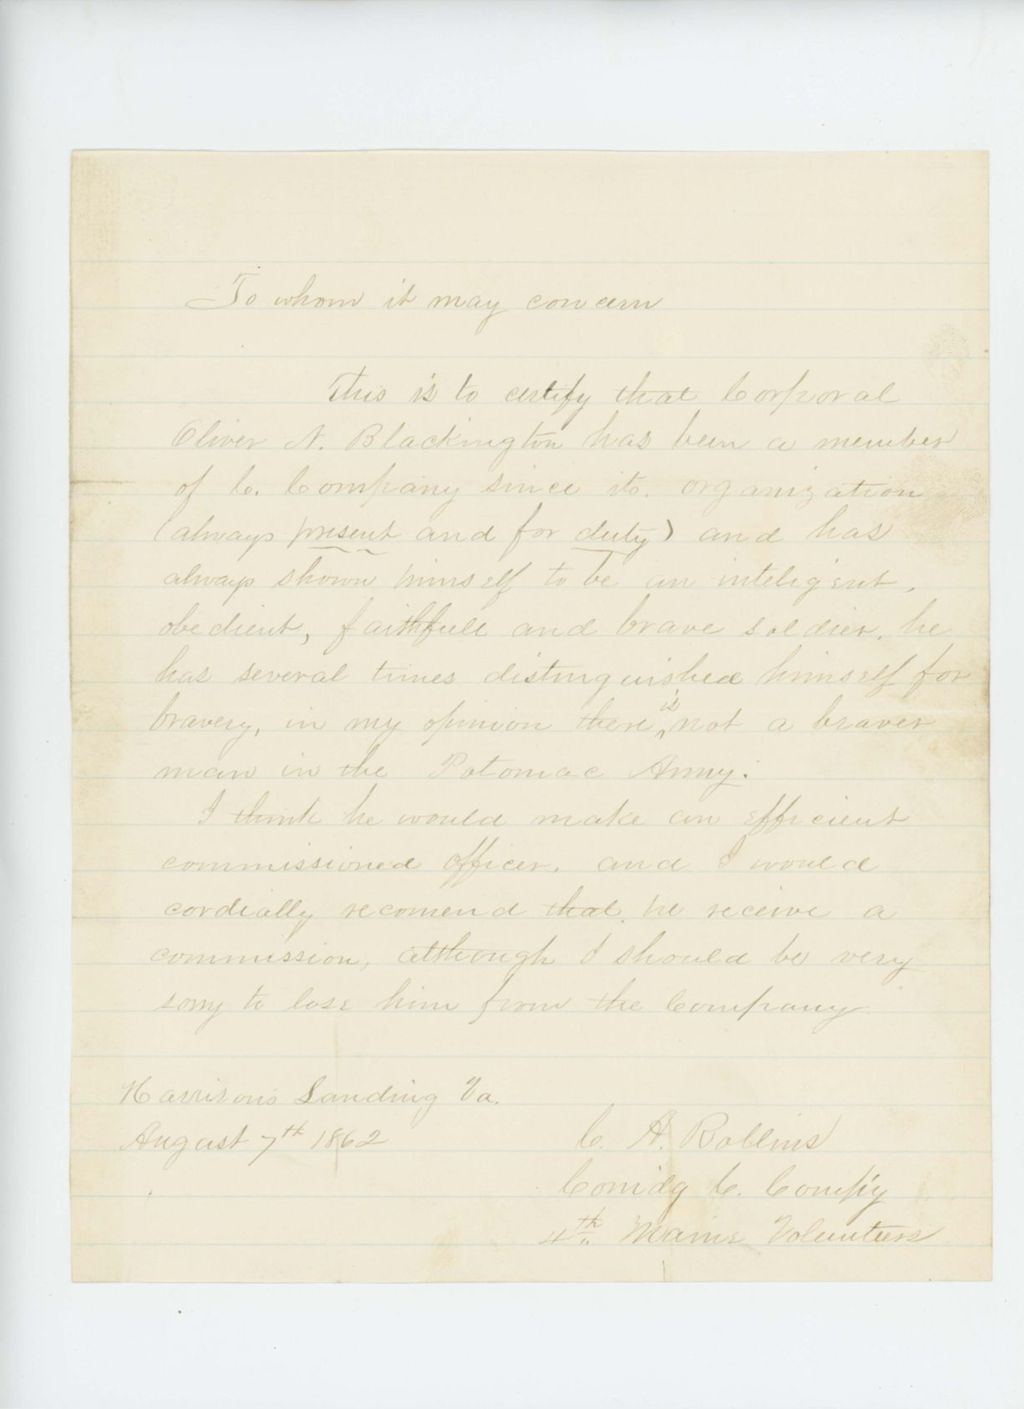 To whom it may concern
This is to certify that Corporal
Oliver N. Blackington has been a member
of C. Company since its. organization
(always present and for duty) and has
always shown himself to be an inteligent,
obedient, faithfull and brave soldier. he
has several times distinguished himself for
bravery, in my opinion there is not a braver
man in the Potomac Army.
I think he would make an efficient
commissioned officer. and I would
cordially recomend that he receive a
commission, although I should be very
sorry to lose him from the Company
Harrisons Landing Va.
August 7th 1862
C. A. Rollins
Comdg C. Comp'y
4th Maine Volunteers